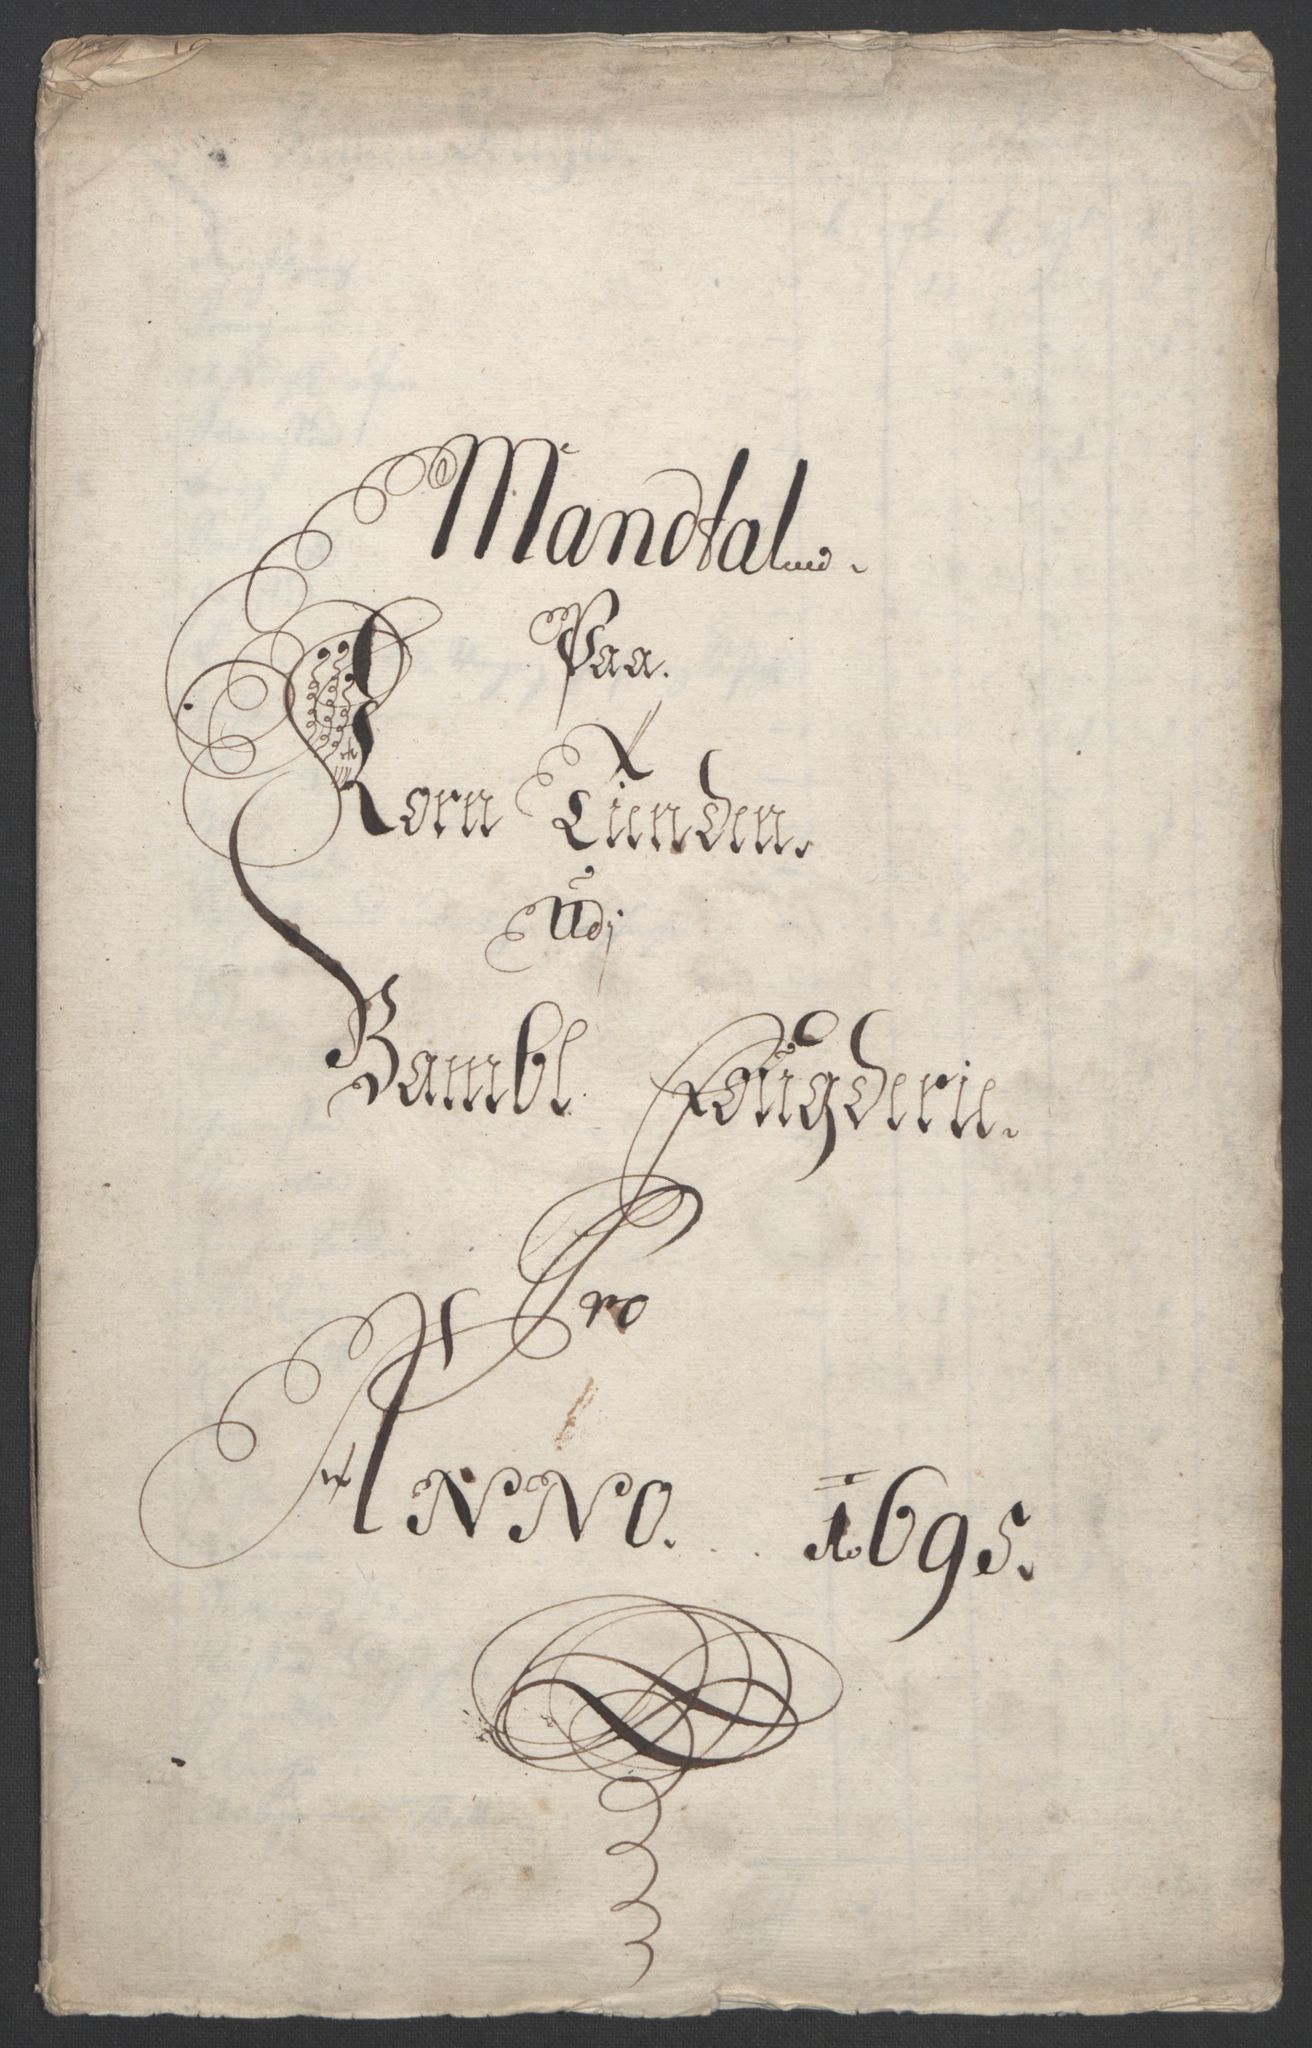 Mandtal
Paa.
Korn Tienden.
Udj
Bambl Fougderie.
Pro
ANNO. 1695.